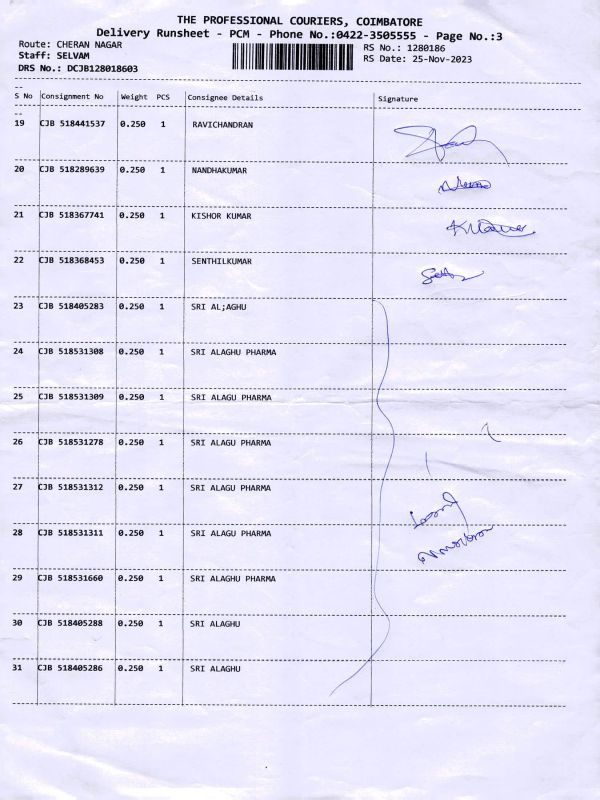 THE PROFESSIONAL COURIERS, COIMBATORE
Delivery Runsheet - PCM - Phone No.:0422-3505555 - Page No.:3
Route: CHERAN NAGAR
RS No.: 1280186
Staff: SELVAM
RS Date: 25-Nov-2023
DRS No.: DCJB128018603
S No Consignment No Weight PCS Consignee Details Signature
19 CJB 518441537 0.250 1 RAVICHANDRAN
20 CJB 518289639 0.250 1 NANDHAKUMAR
21 CJB 518367741 0.250 1 KISHOR KUMAR
22 CJB 518368453 0.250 1 SENTHILKUMAR
23 CJB 518405283 0.250 1 SRI AL;AGHU
24 CJB 518531308 0.250 1 SRI ALAGHU PHARMA
25 CJB 518531309 0.250 1 SRI ALAGU PHARMA
26 CJB 518531278 0.250 1 SRI ALAGU PHARMA
27 CJB 518531312 0.250 1 SRI ALAGU PHARMA
28 CJB 518531311 0.250 1 SRI ALAGU PHARMA
29 CJB 518531660 0.250 1 SRI ALAGHU PHARMA
30 CJB 518405288 0.250 1 SRI ALAGHU
31 CJB 518405286 0.250 1 SRI ALAGHU